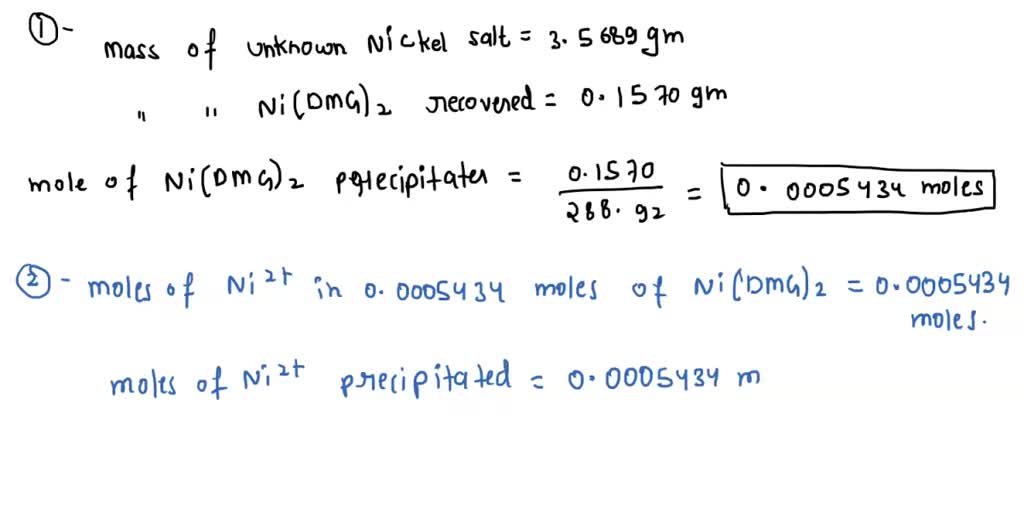 ①- mass of unknown Nickel salt = 3.5689 gm
" " Ni(DMG)2 recovered = 0.1570 gm
mole of Ni(DMG)2 precipitates = 0.1570 / 288.92 = 0.0005434 moles
②- moles of Ni2+ in 0.0005434 moles of Ni(DMG)2 = 0.0005434
moles.
moles of Ni2+ precipitated = 0.0005434 m